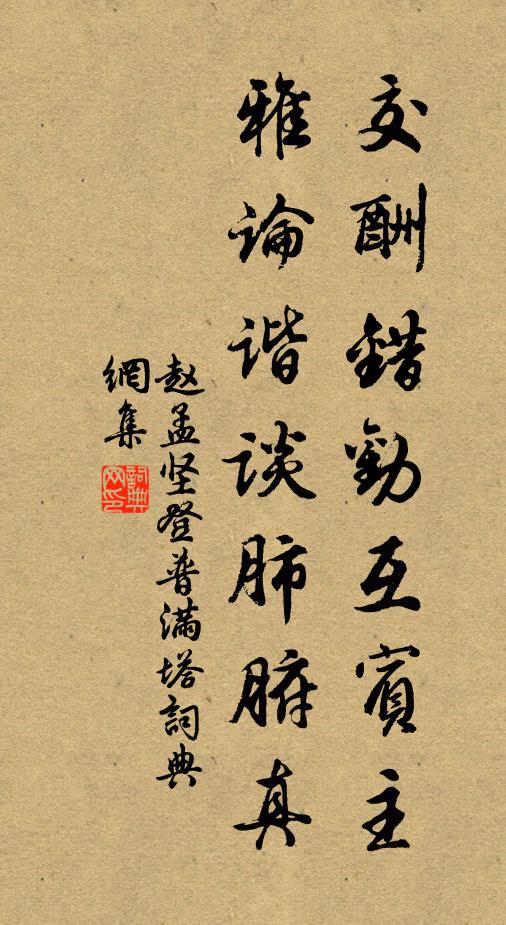 交酬錯勸互賓主
雅論谐談肺腑真
赵孟坚登普滿塔詞典
網集
詞典
网印